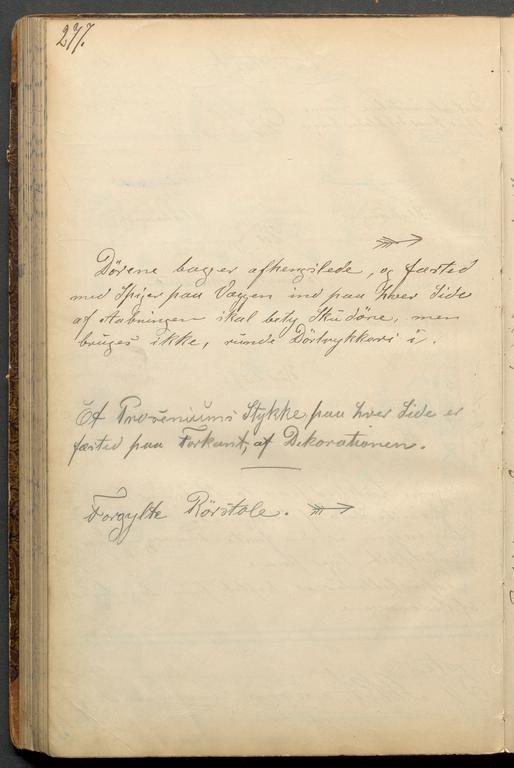 277.
Dörene bag er afhengslede, og fæsted
med Spiger paa Væggen ind paa hver Side
af Aabningen skal bety Skudöre, men
bruges ikke, runde Dörtrykkere i.
Et Proseniums Stykke paa hver Side er
fæsted paa Forkant, af Dekorationen.
Forgylte Rörstole.